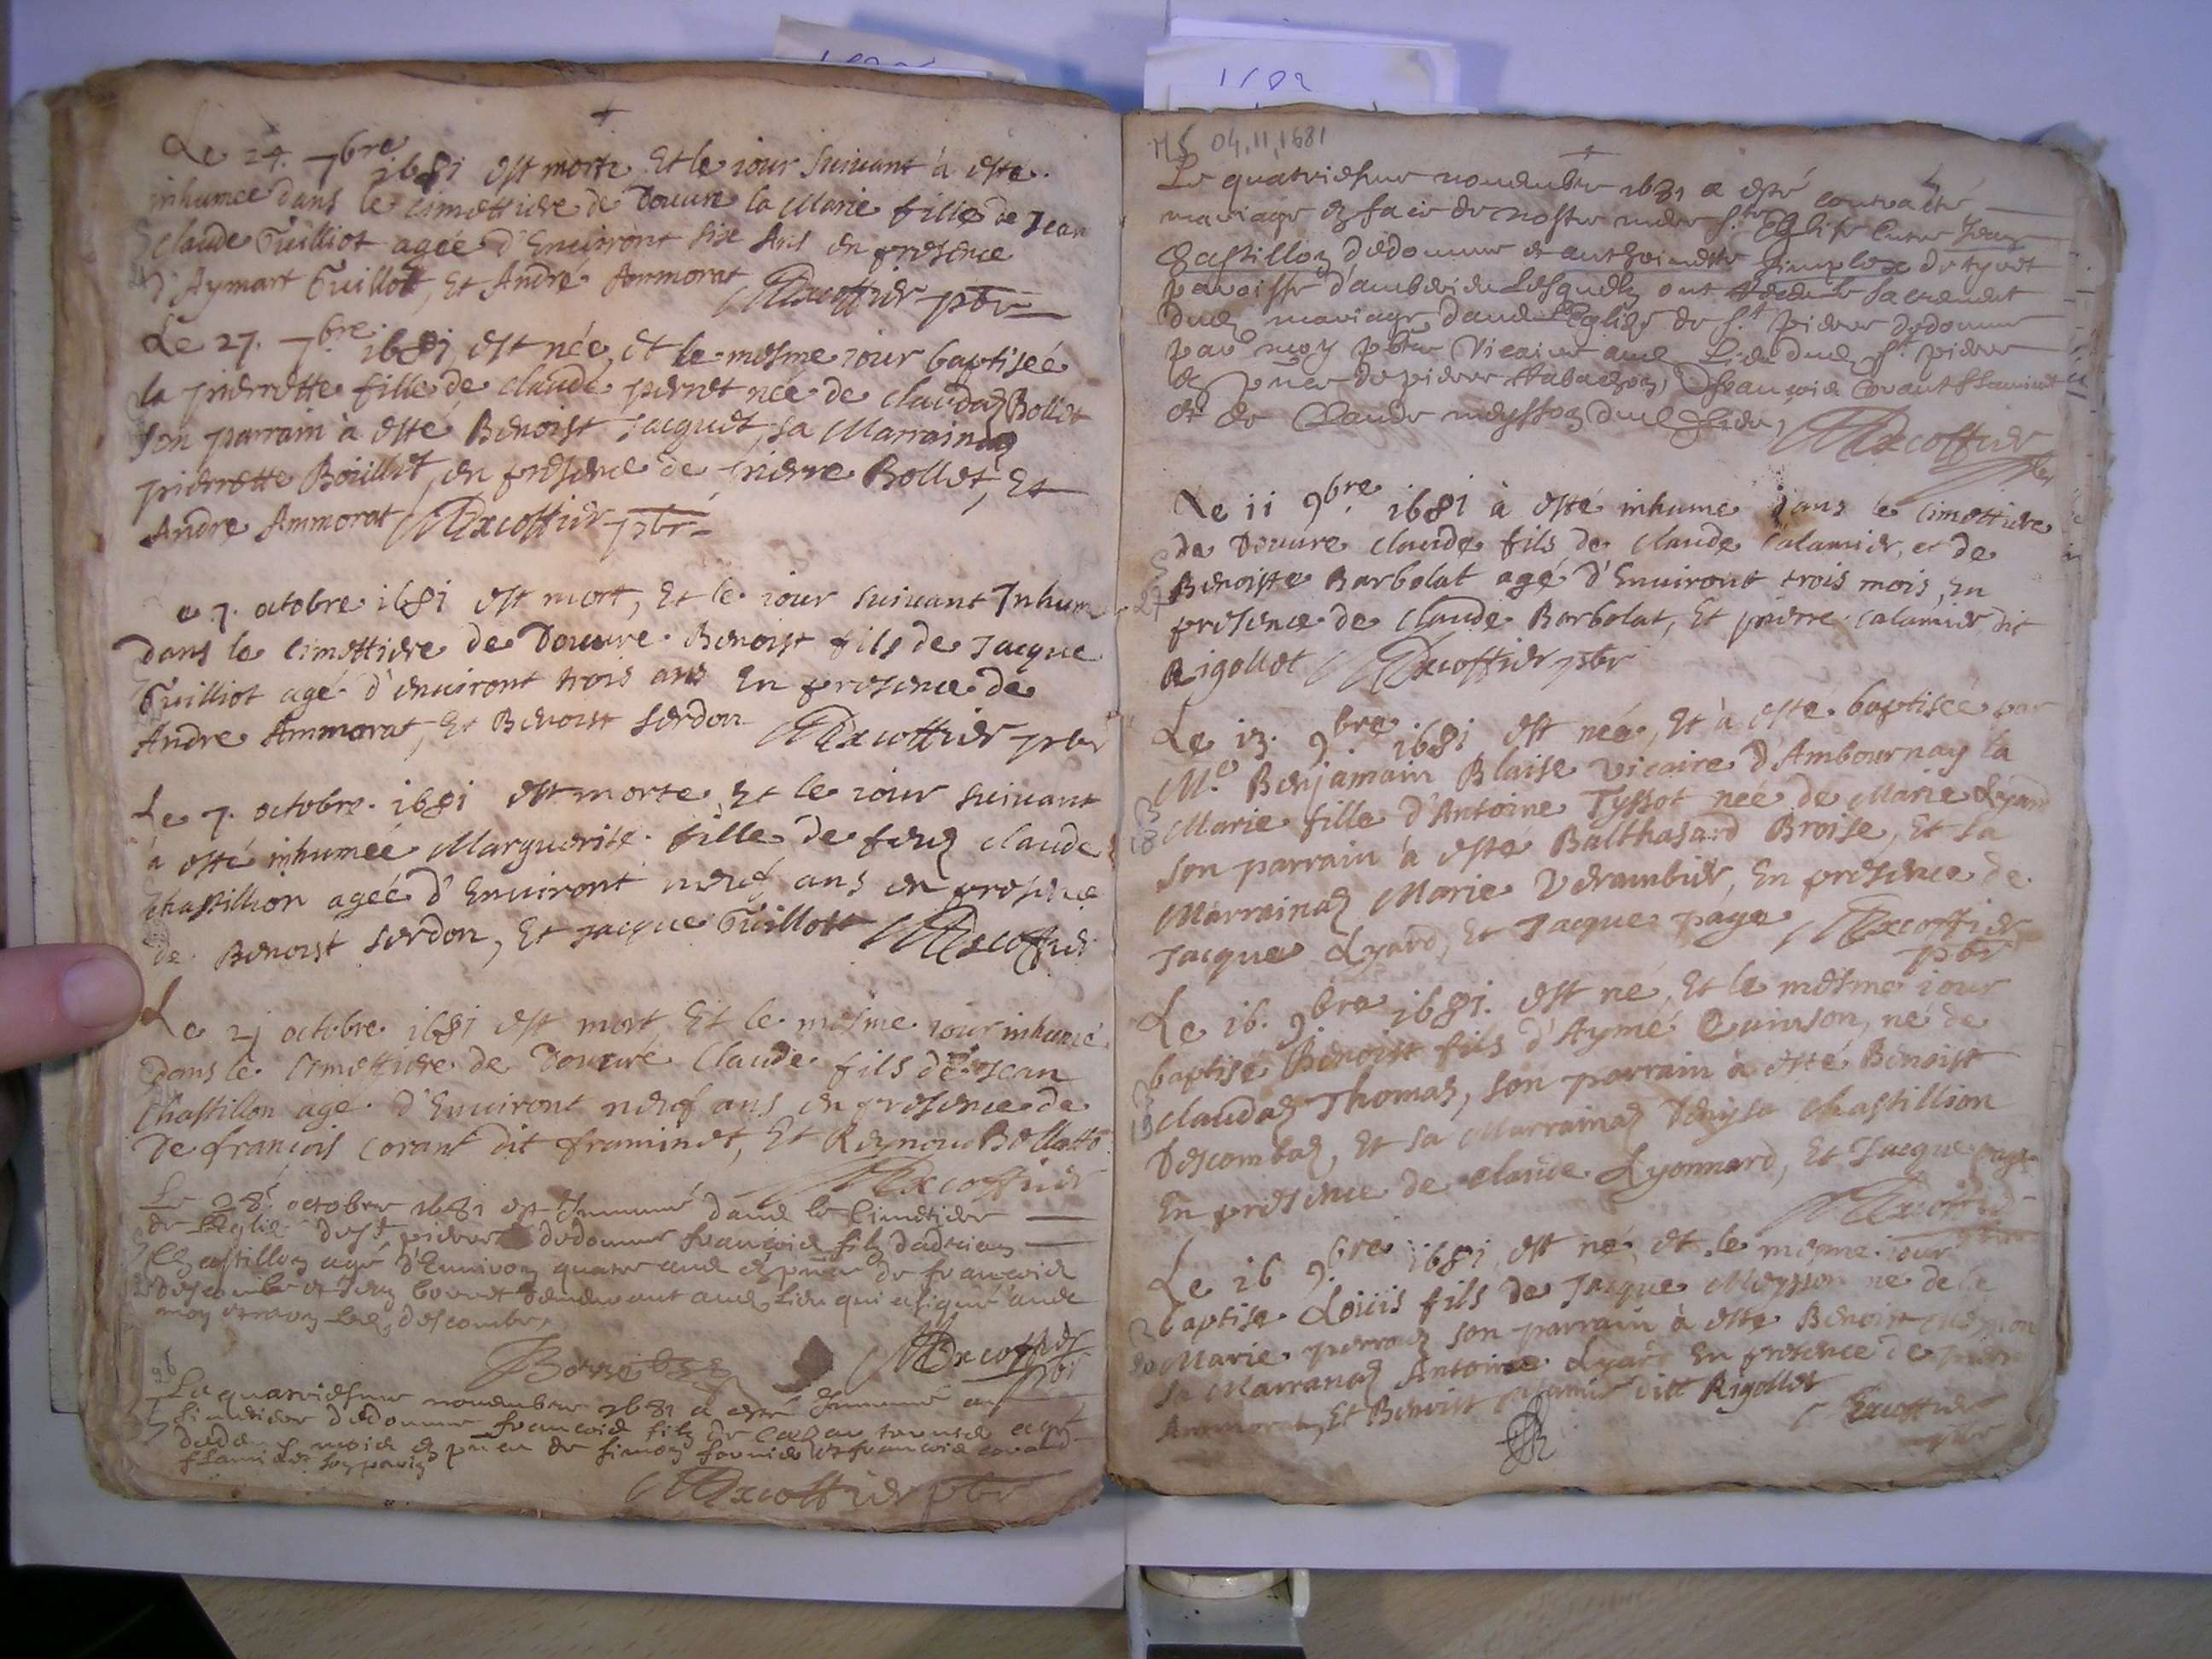 Le 24. 7bre 1681 est morte Et le iour suivant à esté
inhumee dans le cimettiere de Douure la Marie fille de Jean
Claude Tuilliot ageé d'Enuiront six Ans en presence
d'Aymart Tuilliot, Et André Ammorat Excoffier pbr
Le 27. 7bre 1681 est née, et le mesme iour baptiseé
la pierrette fille de Claude pernet neé de Claudaz Bollet
son parrain à esté Benoist Jacquet, sa Marrainaz
pierrette Boüillet, en presence de pierre Bollet, Et
Andre Ammorat Excoffier pbr
e 7. octobre 1681 est mort, Et le iour suiuant Inhum
Dans le cimettiere de Douure Benoist fils de Jacque
Tuilliot agé d'enuiront trois ans En presence de
Andre Ammorat, Et Benoist serdon Excoffier pbr
Le 7. octobre 1681 est morte Et le iour suiuant
à esté inhumeé Marguerite fille de feuz Claude
Chastillion ageé d'Enuiront neuf ans en presence
de Benoist serdon, Et Jacque Tuilliot Excoffier
Le 21 octobre 1681 est mort Et le mesme iour inhumé
Dans le cimettiere de Douure Claude fils de Jean
Chastillon agé d'Enuiront neuf ans en presence de
De francois Corant dit framinet, Et Reynaud Bollatto
Excoffier
Le 28e octobre 1681 est Inhumé dans le Cimetiere
de Leglise de st pierre dedouure francois filz dadrien
Chastillon agé d'Enuiron quatre ans francois
descombe et Jean demeurant aud Lieu qui a signé auec
moy descombe
Excoffier pbr
26
Le quatriesme nouembre 1681 a esté Inhumé au
Cimetiere dedouure francois filz de
mois de simon francois corand
Excoffier pbr
MS 04.11.1681
Le quatriesme nouembre 1681 a esté contracté
mariage en face de nostre mere ste Eglise Entre Jean
Chastillon dedouure et anthoinette
paroisse d'amberieu Lesquelz ont Sacrement
dud mariage dans Leglise de st pierre dedouure
par moy pbre Vicaire aud Lieu dud st pierre
de pierre francois Corant flaminet
et de Claude meysson dud Lieu,
Excoffier
pbr
Le 11 9bre 1681 à esté inhume dans le Cimettiere
de Douure Claude fils de Claude Calamier, et de
Benoiste Barbolat agé d'Enuiront trois mois, En
presence de Claude Barbolat, Et pierre Calamier dit
Rigollet Excoffier pbr
Le 13. 9bre 1681 est neé, Et à esté baptiseé par
Me Benjamain Blaise Vicaire d'Ambournay la
Marie fille d'Antoine Tyssot neé de Marie Lyard
son parrain à esté Balthasard Broise, Et sa
Marrainaz Marie Verambier, En presence de
Jacque Lyard, Et Jacque page Excoffier
pbr
Le 16. 9bre 1681. est né, Et le mesme iour
baptisé Benoist fils d'Aymé Quinson, né de
Claudaz Thomaz, son parrain à esté Benoist
Descombaz, Et sa Marrainaz Denysa Chastillion
En presence de Claude Lyonnard, Et Jacque page
Excoffier
pbr
Le 16 9bre 1681 est né, et le mesme iour
baptise Loüis fils de Jacque Meysson né de la
Marie perraz son parrain à esté Benoist
sa Marranaz Antoinaz Lyard En presence de pierre
Ammorat, Et Benoist Calamier ditt Rigollet
Excoffier
pbr